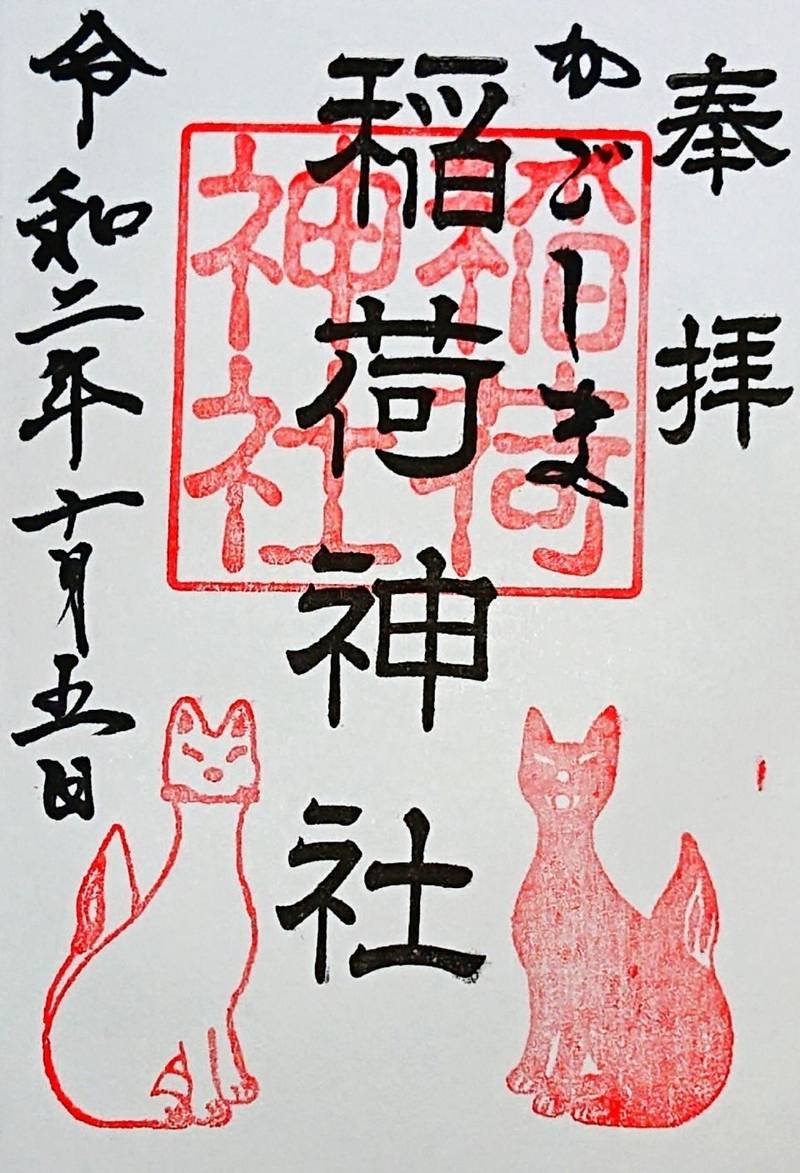 奉拝
かごしま
稲荷神社
稲荷神社
令和二年十月五日